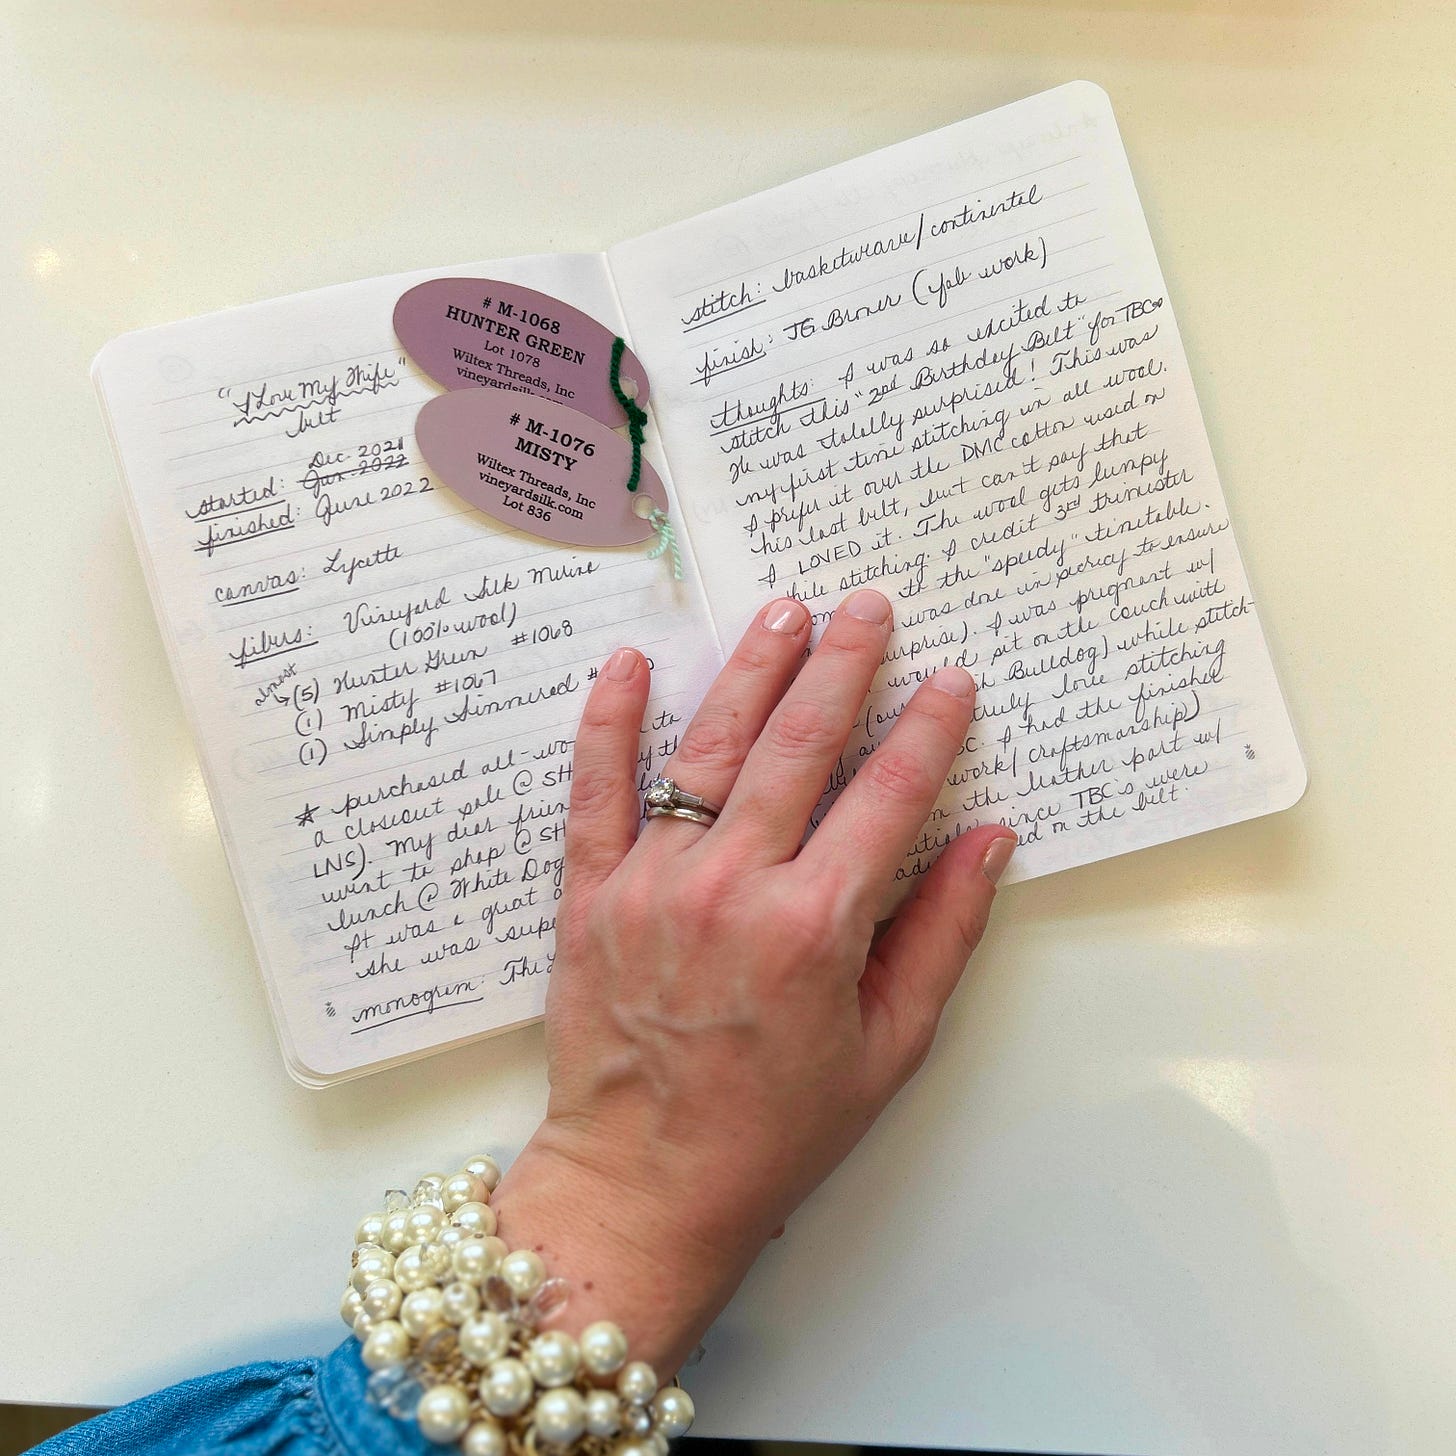 "I Love My Wife"
belt
Dec. 2021
started: Jun. 2022
finished: June 2022
canvas: Lycette
fibers: Vineyard Silk Merino
(100% wool)
almost
(5) Hunter Green #1068
(1) Misty #1067
(1) Simply Simmered #
* purchased all-wo to
a closeout sale @ SH y th
LNS). My dear frien
went to shop @ SH
lunch @ White Dog
It was a great a
she was supe
monogram: The L
# M-1068
HUNTER GREEN
Lot 1078
Wiltex Threads, Inc
vineyardsilk.com
# M-1076
MISTY
Wiltex Threads, Inc
vineyardsilk.com
Lot 836
stitch: basketweave/continental
finish: JG Broner (fab work)
thoughts: I was so excited to
stitch this "2nd Birthday Belt" for TBC
He was totally surprised! This was
my first time stitching in all wool.
I prefer it over the DMC cotton used on
his last belt, but can't say that
I LOVED it. The wool gets lumpy
hile stitching. I credit 3rd trimester
om th the "speedy" timetable.
was done in secrecy to ensure
surprise). I was pregnant w/
would sit on the couch with
(our sh Bulldog) while stitch-
truly love stitching
BC. I had the finished
work/craftsmanship)
m the leather part w/
nitials since TBC's were
ed on the belt.